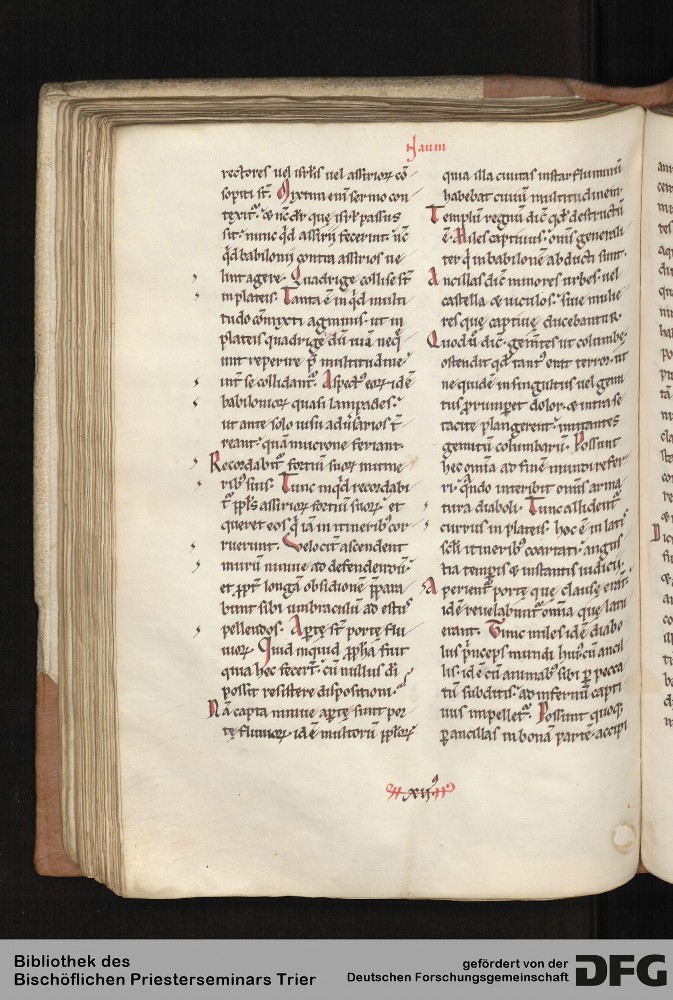 Naum
rectores uel isrl's uel assirioꝝ cō
sopiti st̄. Mixtim eni sermo con
texit̄. & nc̄ dr̄ que isrl' passus
sit. nunc qd assirii fecerint. nc̄
qd babilonii contra assirios ue
lint agere. Quadrige collise st̄
in plateis. Tanta ē inqd multi
tudo cōmixti agminis. ut in
plateis quadrige dū uiā neq
unt reperire p̄ multitudine
int̄ se collidant̄. Aspect' eoꝝ idē
babilonioꝝ quasi lampades.
ut ante solo uisu aduersarios t̄
reant. quā mucrone feriant.
Recordabit̄ fortiū suoꝝ in itine
rib' suis. Tunc inqd recordabi
t̄ ppl's assirioꝝ fortiū suoꝝ. et
queret eos q iā in itinerib' cor
ruerunt. Velocit̄ ascendent
murū niniue ad defendendū.
et ppt̄ longā obsidionē p̄para
bunt sibi umbraculū ad estus
pellendos. Apertę st̄ portę flu
uioꝝ. Quid inquid ppha fiut
quia hec fecert̄. cū nullus di
possit resistere dispositioni.
Nā capta niniue apertę sunt por
tę fluuioꝝ. id ē multorū pploꝝ.
quia illa ciuitas instar fluminū
habebat ciuiū multitudinem.
Templū regnū dic̄ qd destructū
ē. Miles captiuus. om̄s generali
ter q in babilonē abducti sunt.
Ancillas dic̄ minores urbes. uel
castella & uiculos. siue mulie
res que captiuę ducebantur.
Quod ū dic̄. gem̄tes ut columbe.
ostendit qd tant' erit terror. ut
ne quidē in singultus uel gemi
tus prumpet dolor. & intra se
tacite plangerent. imitantes
gemitū columbarū. Possunt
hec omnia ad finē mundi refer
ri. qn̄do interibit om̄is arma
tura diaboli. Tunc allident̄
currus in plateis. hoc ē in latis
sc̄li itinerib' coartati. angus
tia temporis & instantis iudicii.
Aperient̄ portę que clause erant.
idē reuelabunt̄ omnia que late
erant. Tunc miles idē diabo
lus p̄nceps mundi hui' cū ancil
lis. id ē cū animab' sibi p pecca
tū subditis. ad infernū capti
uus impellet̄. Possunt quoq.
p ancillas in bonā partē accipi
XII'
Bibliothek des
Bischöflichen Priesterseminars Trier
gefördert von der
Deutschen Forschungsgemeinschaft
DFG